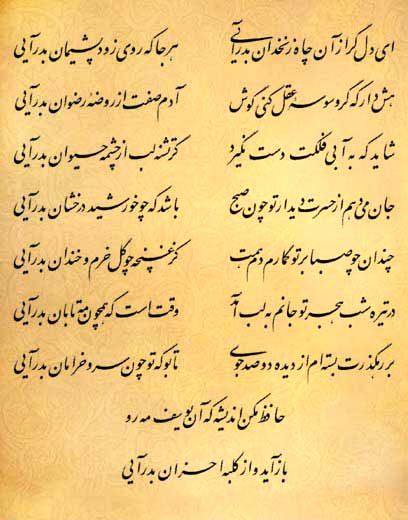 ای دل گر از آن چاه زنخدان بدرآیی هر جا که روی زود پشیمان بدرآیی
هش دار که گر وسوسه عقل کنی گوش آدم صفت از روضه رضوان بدرآیی
شاید که به آبی فلکت دست نگیرد گر تشنه لب از چشمه حیوان بدرآیی
جان می دهم از حسرت دیدار تو چون صبح باشد که چو خورشید درخشان بدرآیی
چندان چو صبا بر تو گمارم دم همت کز غنچه چو گل خرم و خندان بدرآیی
در تیره شب هجر تو جانم به لب آمد وقت است که همچون مه تابان بدرآیی
بر رهگذرت بسته ام از دیده دو صد جوی تا بو که تو چون سرو خرامان بدرآیی
حافظ مکن اندیشه که آن یوسف مه رو
بازآید و از کلبه احزان بدرآیی